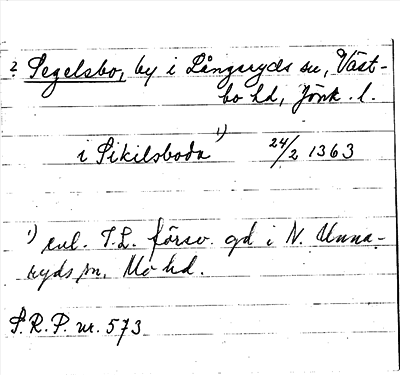 ? Segelsbo, by i Långaryds sn, Väst-
bo hd, Jönk. l.
i Sikilsboda 1) 24/2 1363
1) enl. T.L. försv. gd i N. Unna-
ryds sn, Mo hd.
S.R.P. nr. 573